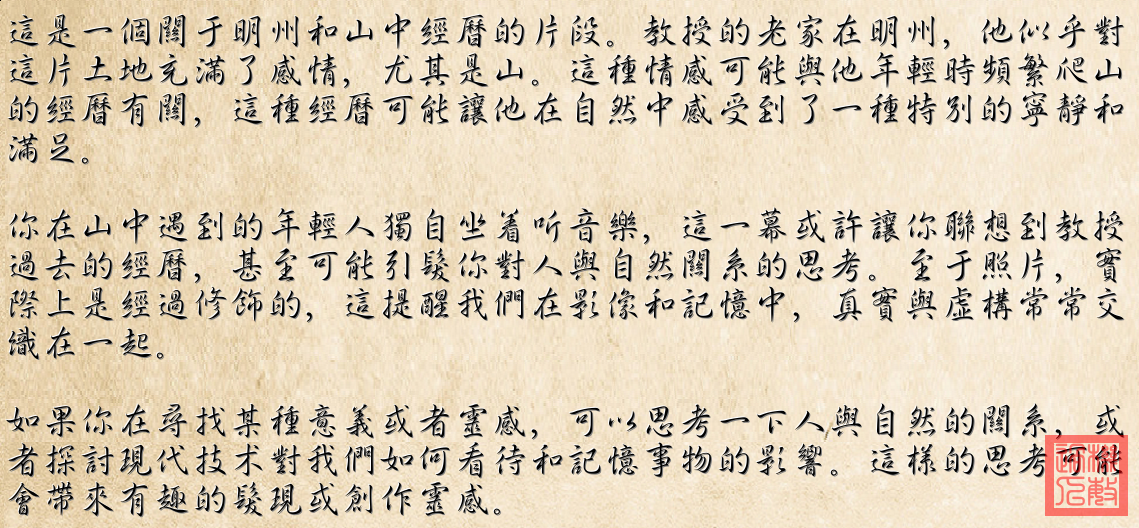 這是一個關于明州和山中經曆的片段。教授的老家在明州，他似乎對
這片土地充滿了感情，尤其是山。這種情感可能與他年輕時頻繁爬山
的經曆有關，這種經曆可能讓他在自然中感受到了一種特別的寧靜和
滿足。
你在山中遇到的年輕人獨自坐着听音樂，這一幕或許讓你聯想到教授
過去的經曆，甚至可能引髮你對人與自然關系的思考。至于照片，實
際上是經過修飾的，這提醒我們在影像和記憶中，真實與虛構常常交
織在一起。
如果你在尋找某種意義或者靈感，可以思考一下人與自然的關系，或
者探討現代技术對我們如何看待和記憶事物的影響。這樣的思考可能
會帶來有趣的髮現或創作靈感。